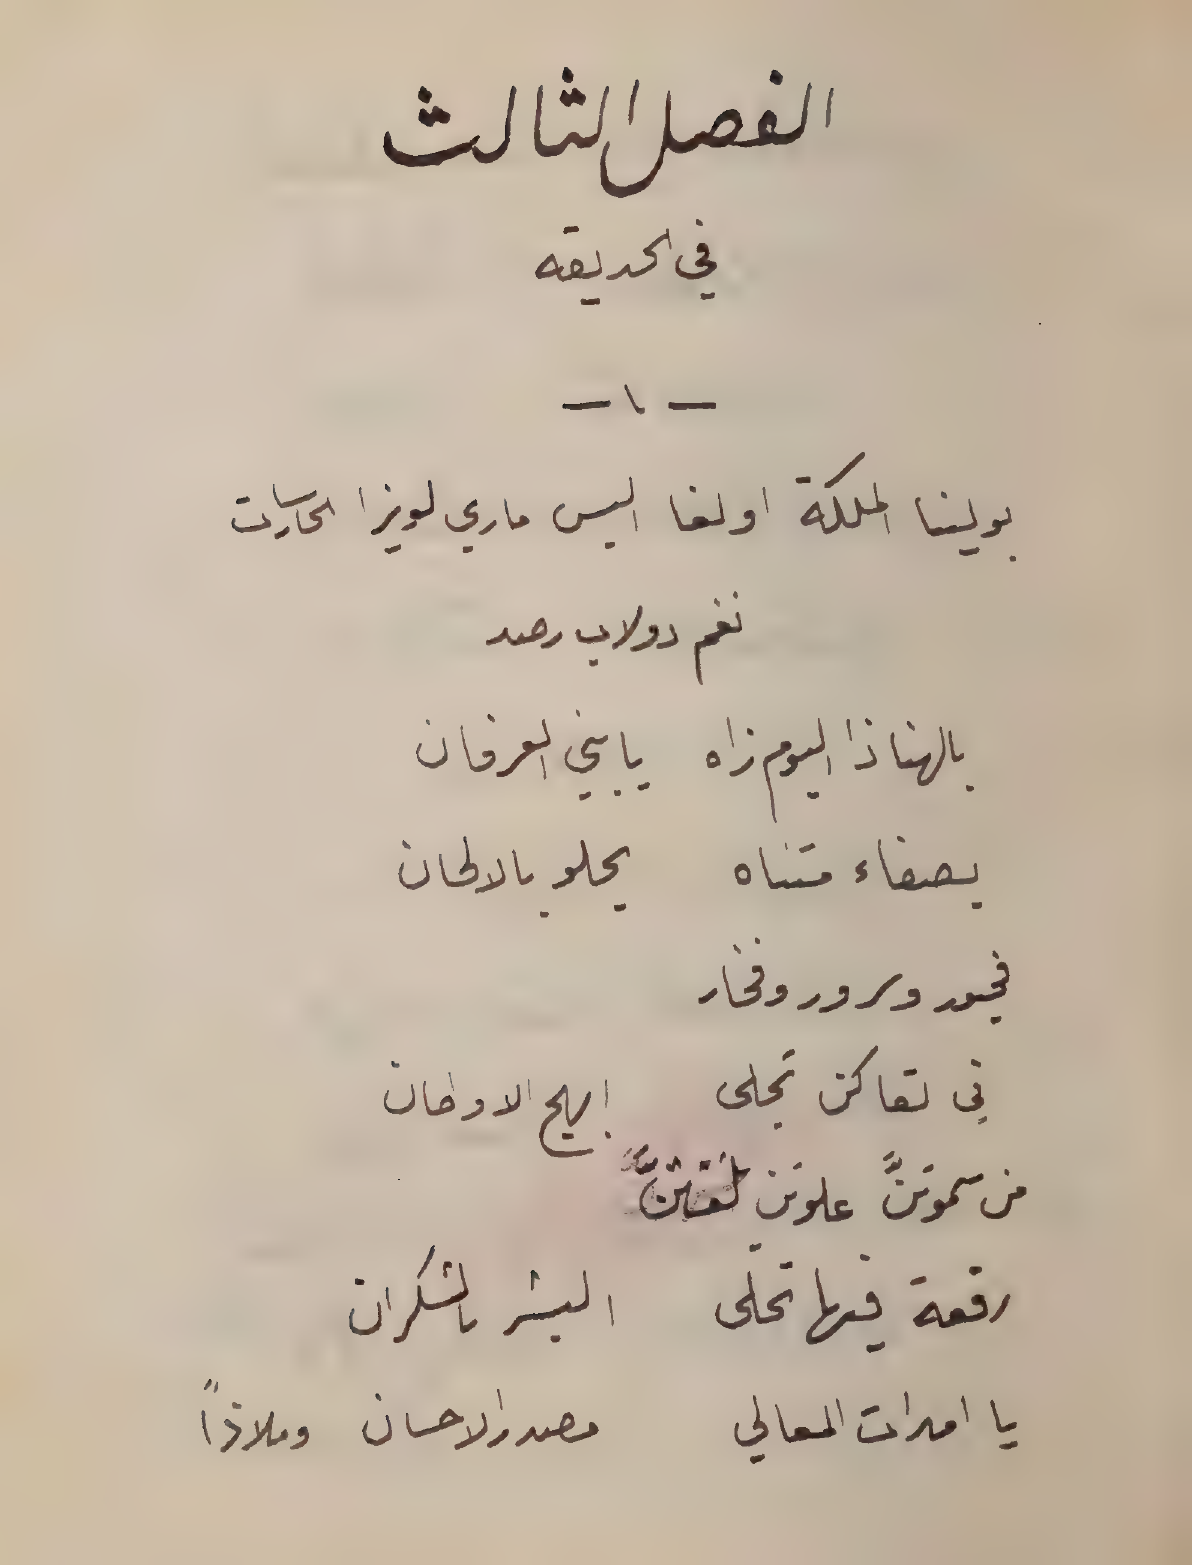 الفصل الثالث
في الحديقه
— ١ —
بولينا الملكة اولغا اليس ماري لويزا الحارسات
نغم دولاب رصد
بالهنا ذا اليوم زاه يا بني العرفان
بصفاء متناه يحلو بالالحان
فحبور وسرور وفخار
في لقاكن تجلى ابهج الاوطان
من سموتنَّ علوتن
رقعة فيها تحلى البشر بالشكران
يا اميرات المعالي مصدر الاحسان وملاذاً